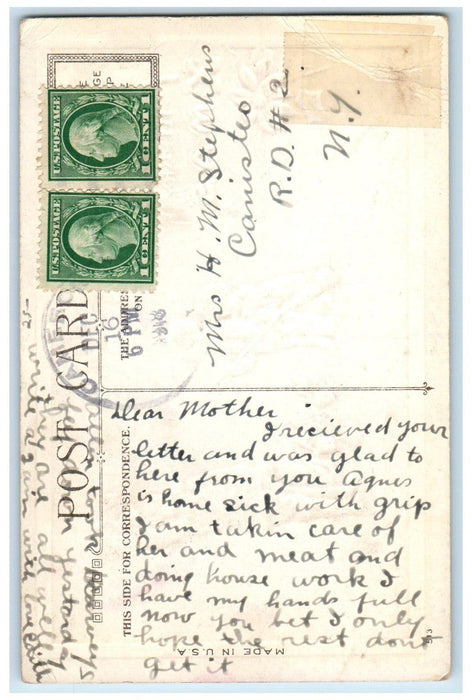 POST CARD
THE ADDRESS
ON
THIS SIDE FOR CORRESPONDENCE.
U.S. POSTAGE
1 CENT 1
U.S. POSTAGE
1 CENT 1
DEC
16
6 PM
Mrs H. M. Stephens
Canisteo
R.D. # 2.
N.Y.
Dear Mother
I recieved your
letter and was glad to
here from you Agnes
is home sick with grip
I am takin care of
her and meat and
doing house work I
have my hands full
now you bet I only
hope the rest dont
get it
yesterday
they are all well
write again with love
MADE IN U.S.A.